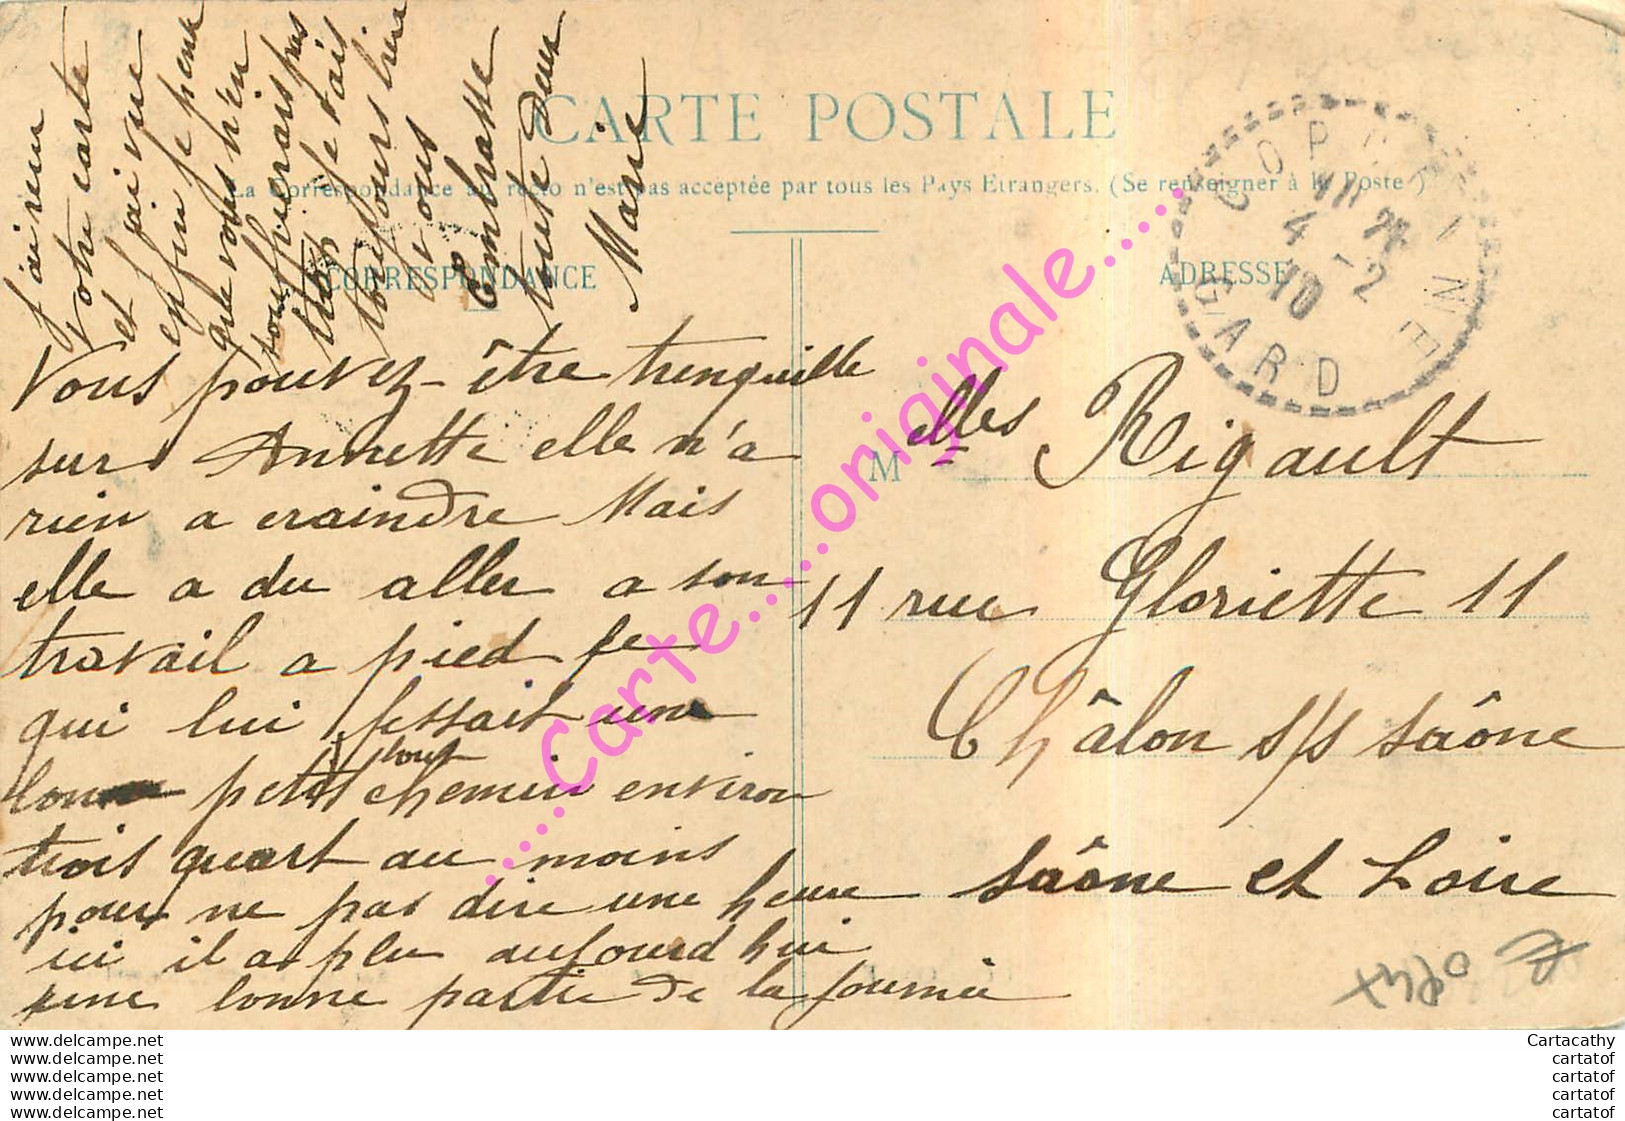 CARTE POSTALE
La Correspondance au recto n'est pas acceptée par tous les Pays Etrangers. (Se renseigner à la Poste)
CORRESPONDANCE
ADRESSE
Vous pouvez-être trenquille
sur Annette elle n'a
rien a craindre Mais
elle a du aller a son
travail a pied se
qui lui fessait une
petit bout chemin environ
trois quart au moins
pour ne pas dire une heure
ici il a plu aujourd'hui
une bonne partie de la journée
j'ai reçu
votre carte
et j'ai vue
enfin je pense
que vous n'en
souffrierais pas
trop je vais
toujours bien
vous
Embrasse
toute deux
Marie
Melles Rigault
11 rue Gloriette 11
Châlon s/s saône
saône et Loire
4 - 2
10
GARD
.....Carte.....originale.....
www.delcampe.net
www.delcampe.net
www.delcampe.net
www.delcampe.net
www.delcampe.net
Cartacathy
cartatof
cartatof
cartatof
cartatof